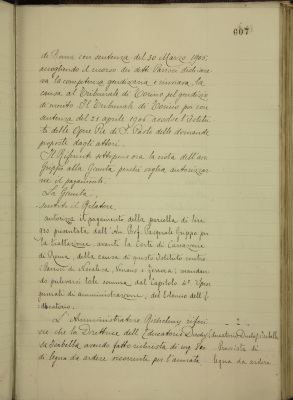 607
di Roma con sentenza del 30 Marzo 1905,
accogliendo il ricorso dei detti Parroci dichiara-
va la competenza giudiziaria e rinviava la
causa al Tribunale di Torino pel giudizio
di merito. Il Tribunale di Torino poi con
sentenza del 28 aprile 1906 assolse l'Istitu-
to delle Opere Pie di S. Paolo dalle domande
proposte dagli attori.
Il Riferente sottopone ora la nota dell'avv.
Grippo alla Giunta perchè voglia autorizzar-
ne il pagamento.
La Giunta
sentito il Relatore
autorizza il pagamento della parcella di lire
dall'On. Prof. Pasquale Grippo per
la trattazione avanti la Corte di Cassazione
di Roma, della causa di questo Istituto contro
Parroci di e Genova; mandan-
do prelevarsi tale somma dal Capitolo 4° Spese
generali di amministrazione, del bilancio dell'E-
ducatorio.
L'Amministratore riferi-
sce che la Direttrice dell'Educatorio Duchessa
Isabella avendo fatto richiesta di
di legna da ardere occorrente per l'annata
- 2 -
Educatorio Duchessa Isabella
Provvista di
legna da ardere